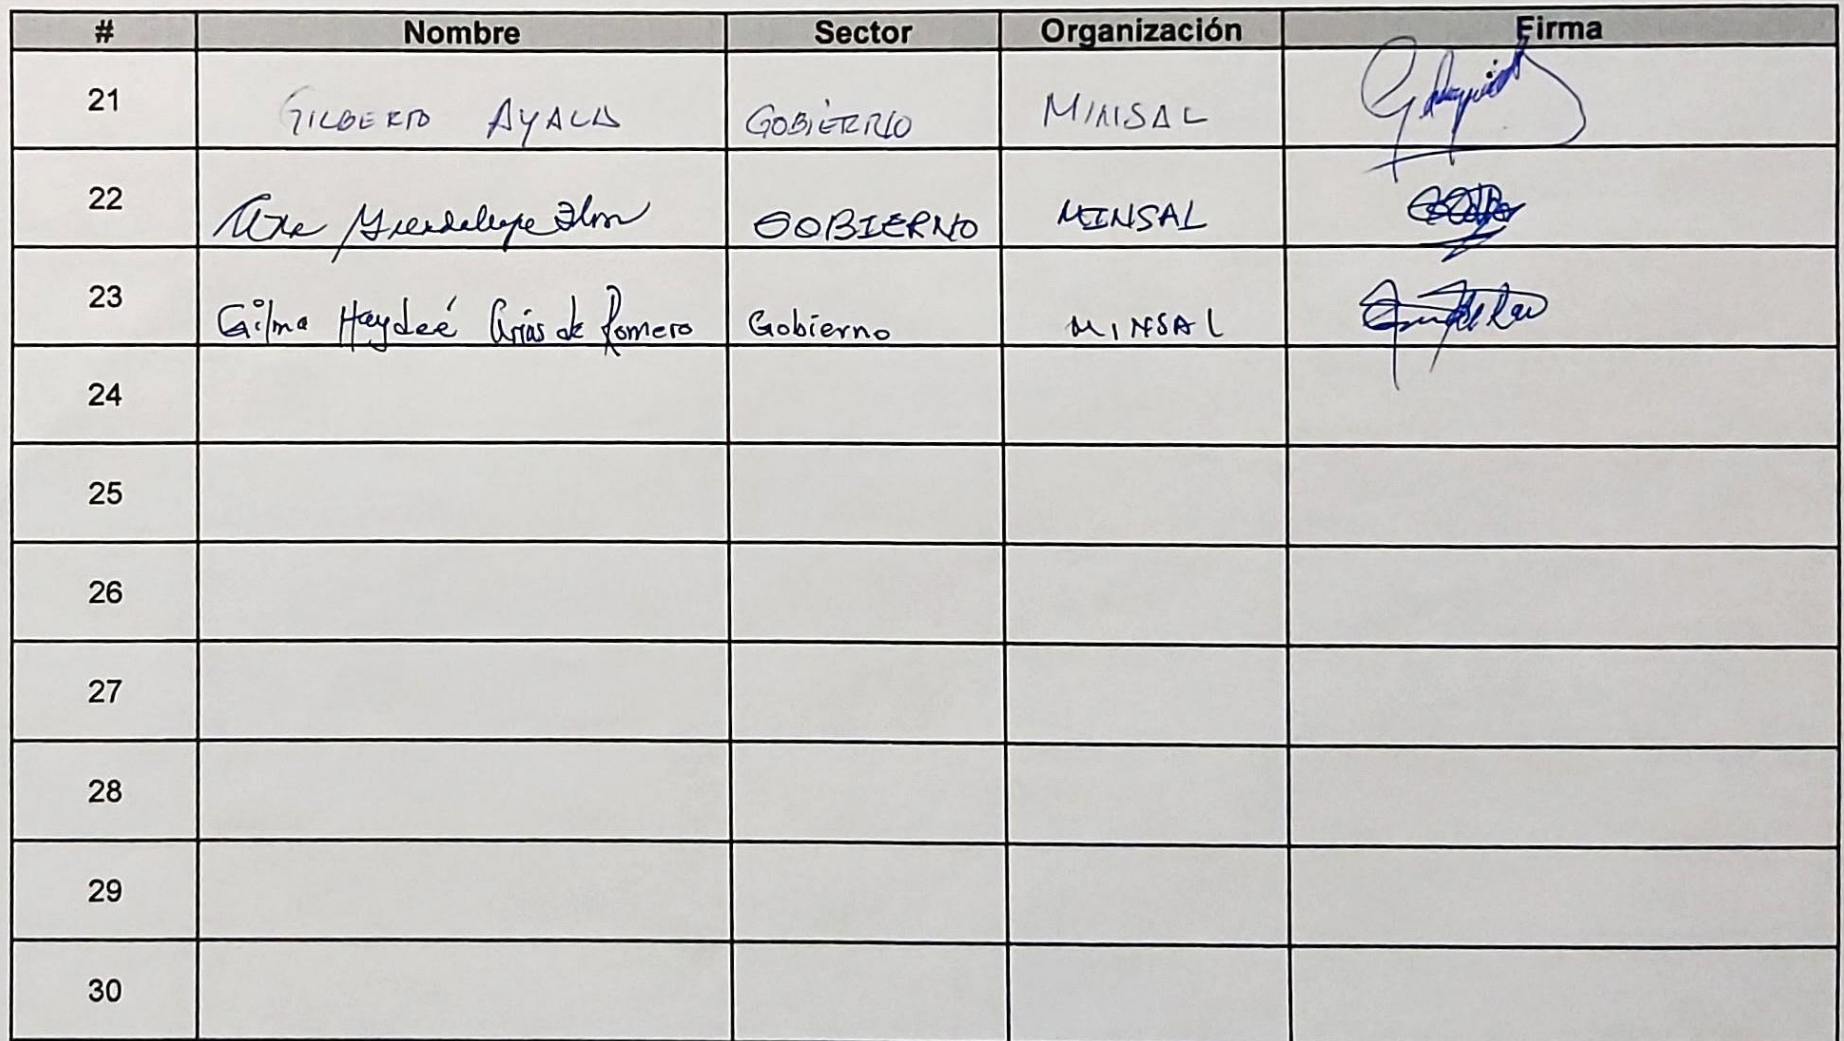 # Nombre Sector Organización Firma
21 GILBERTO AYALA GOBIERNO MINSAL
22 Ana Guadalupe Flores GOBIERNO MINSAL
23 Gilma Haydeé Arias de Romero Gobierno MINSAL
24
25
26
27
28
29
30